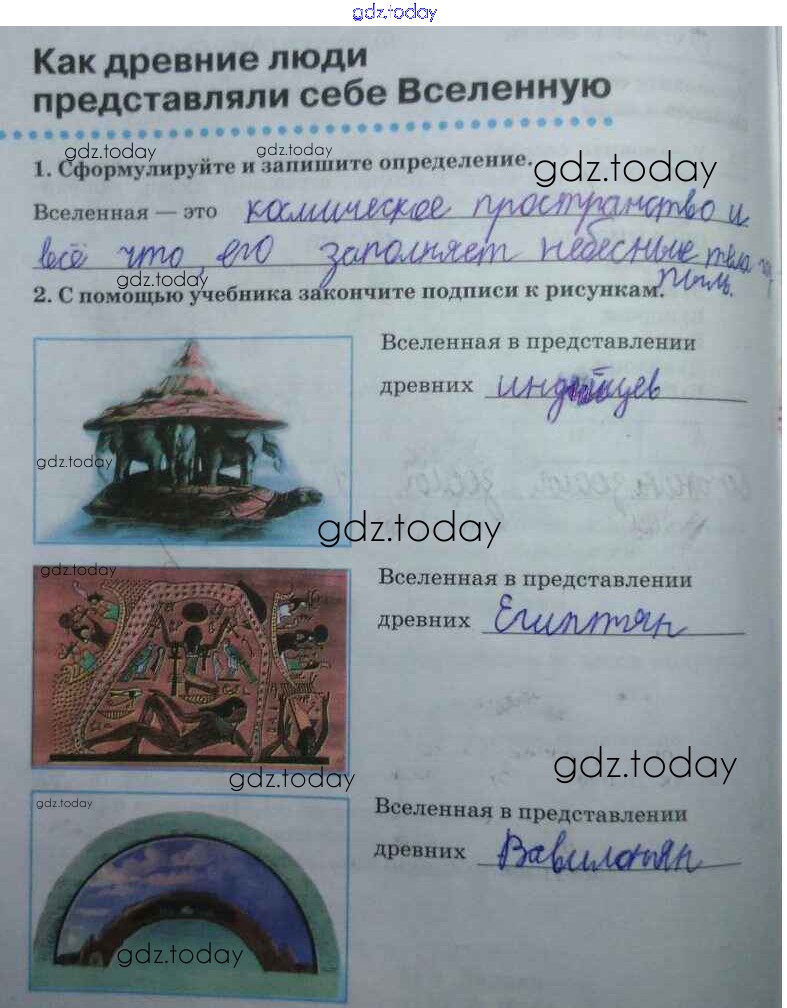 gdz.today
Как древние люди
представляли себе Вселенную
gdz.today
gdz.today
1. Сформулируйте и запишите определение.
gdz.today
Вселенная — это космическое пространство и
всё что его заполняет небесные тела
gdz.today
2. С помощью учебника закончите подписи к рисункам.
Вселенная в представлении
древних индийцев
gdz.today
gdz.today
gdz.today
Вселенная в представлении
древних Египтян
gdz.today
gdz.today
gdz.today
Вселенная в представлении
древних Вавилонян
gdz.today